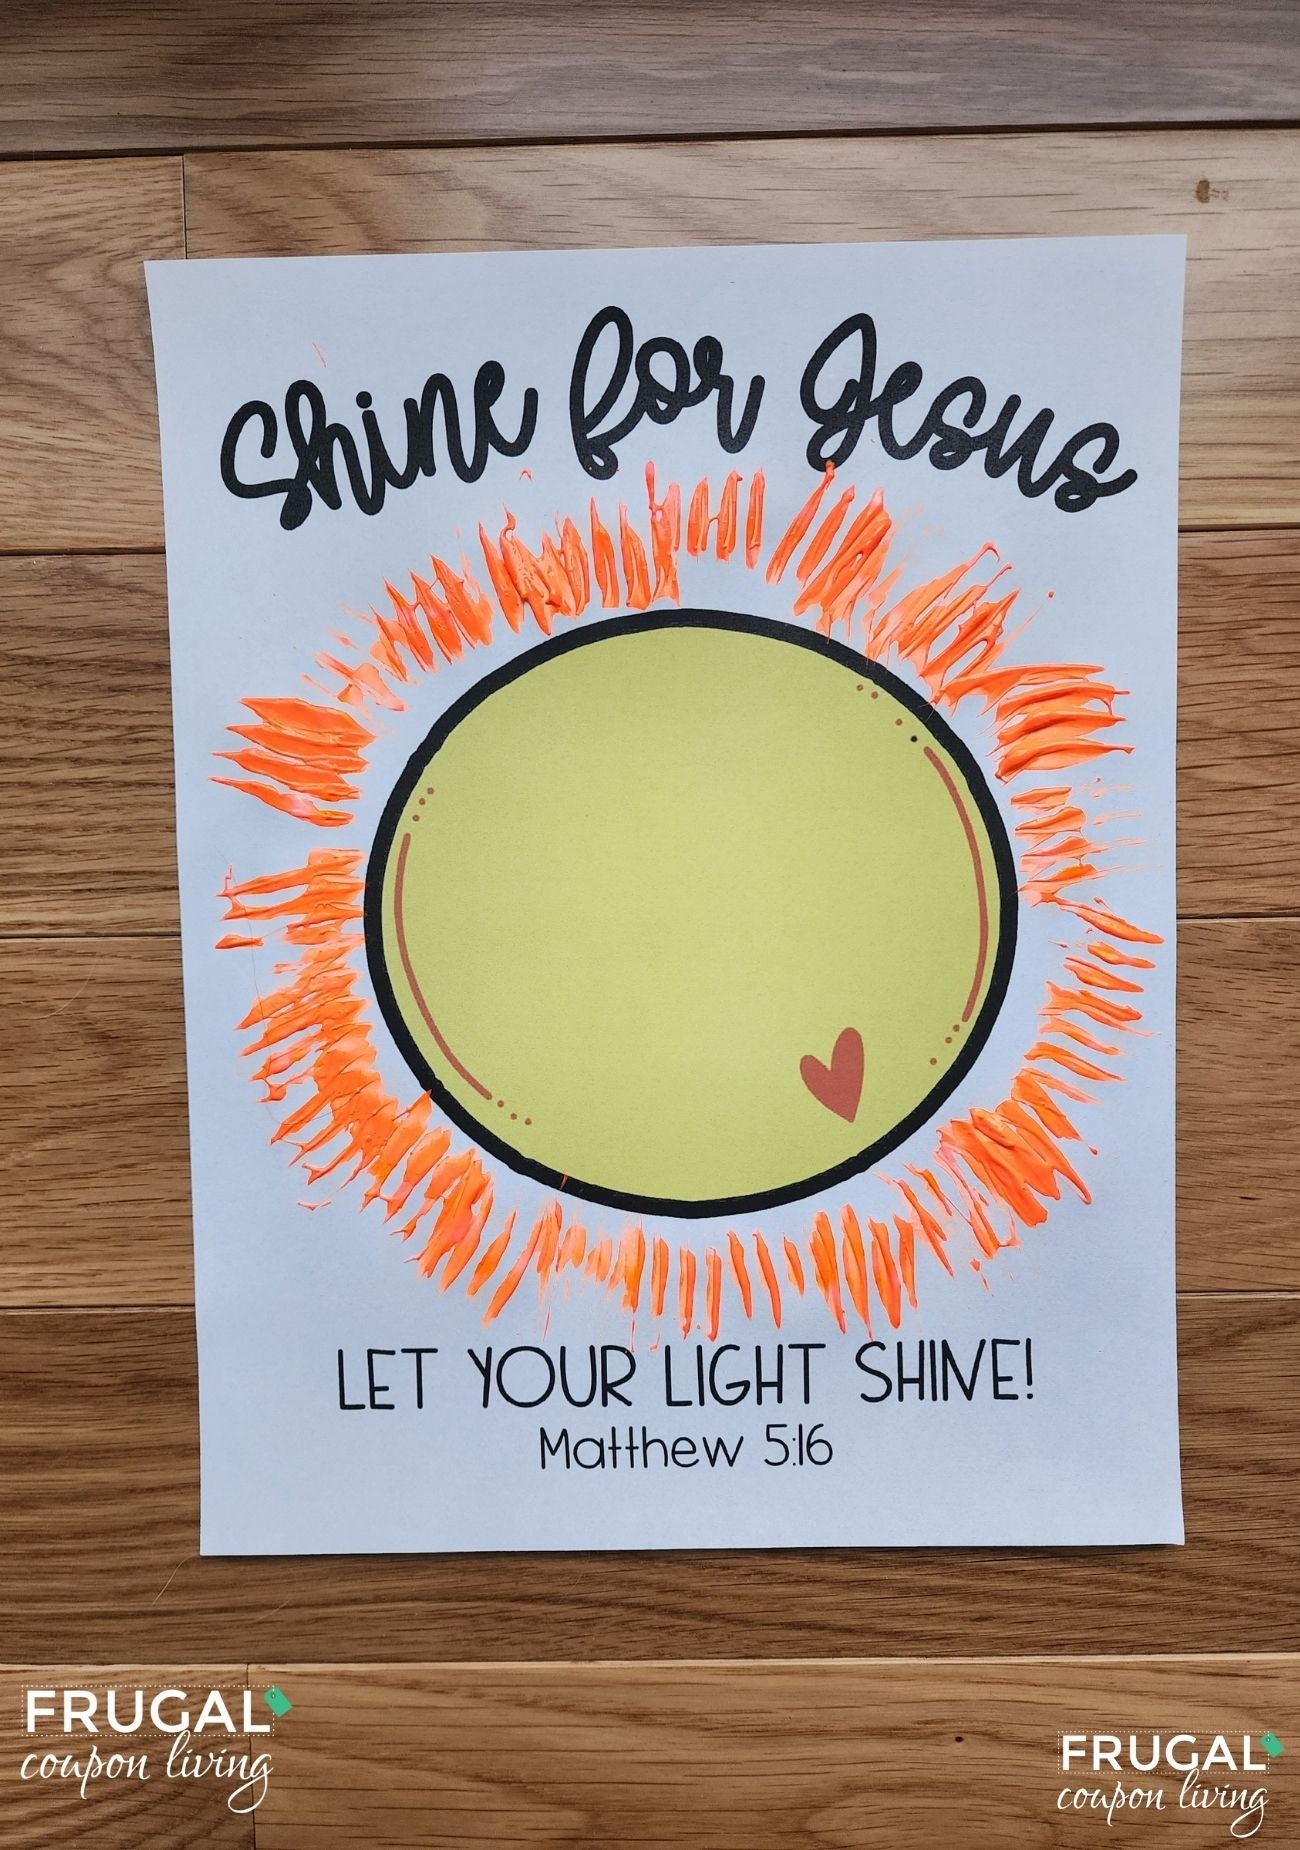 Shine for Jesus
LET YOUR LIGHT SHINE!
Matthew 5:16
FRUGAL
coupon living
FRUGAL
coupon living